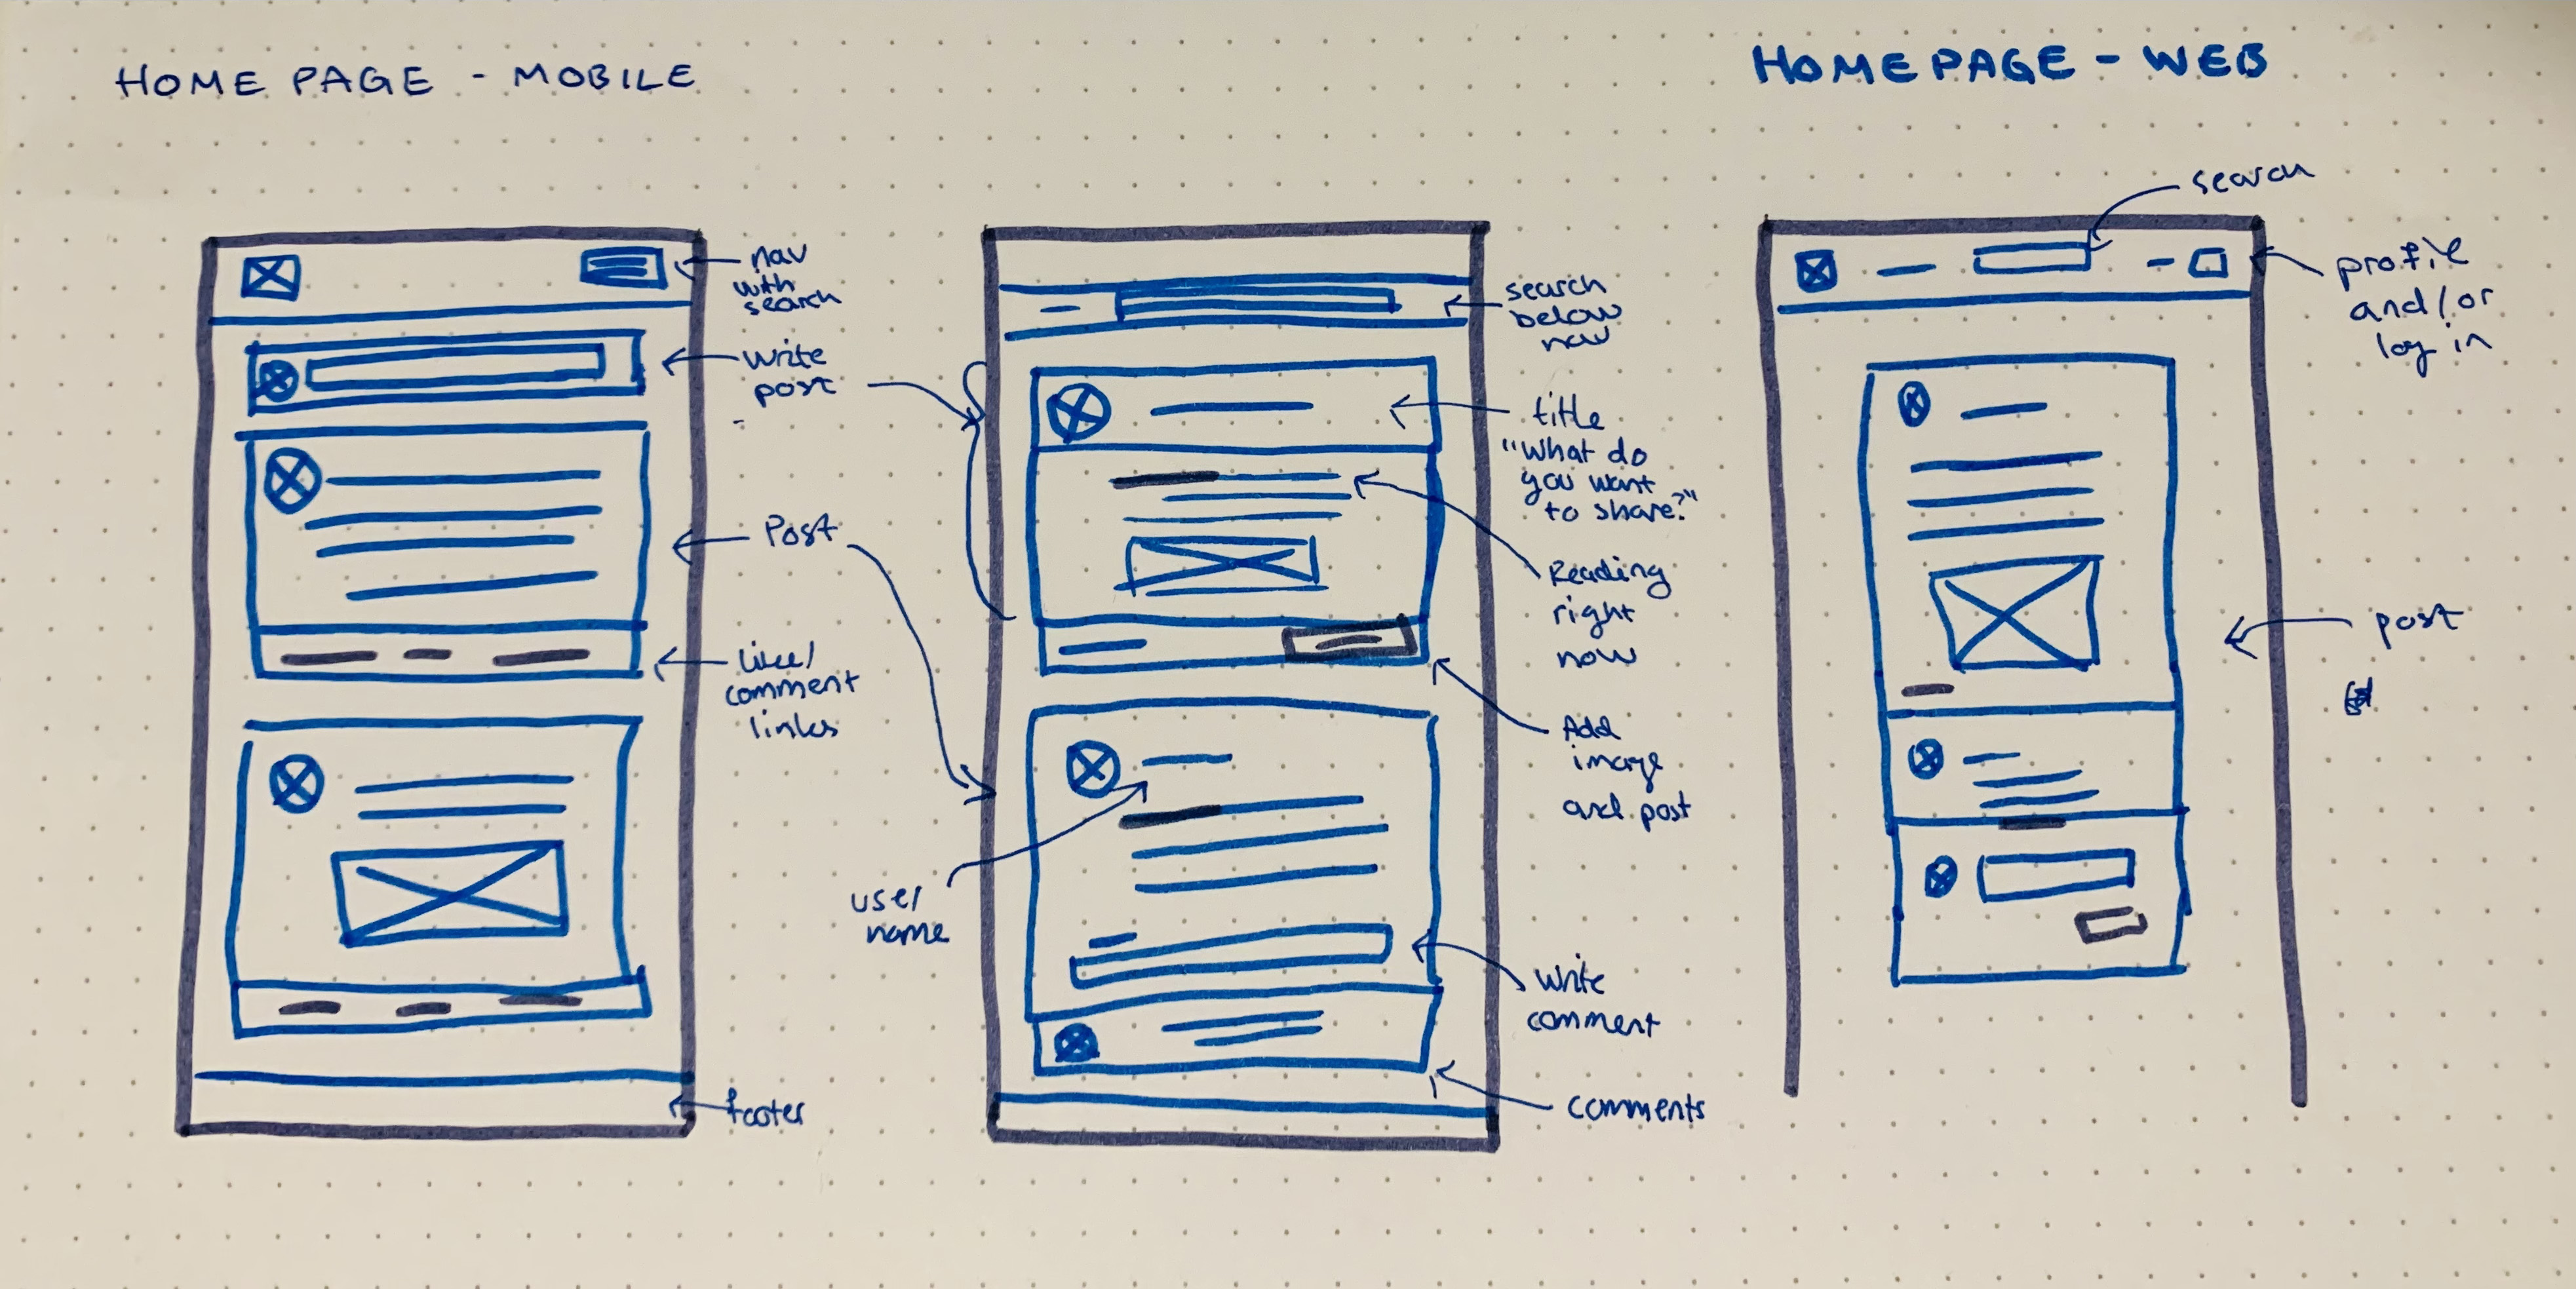 HOME PAGE - MOBILE
HOMEPAGE - WEB
nav
with
search
write
post
Post
like/
comment
links
footer
user
name
search
below
nav
title
"What do
you want
to share?"
Reading
right
now
Add
image
and post
write
comment
comments
search
profile
and/or
log in
post